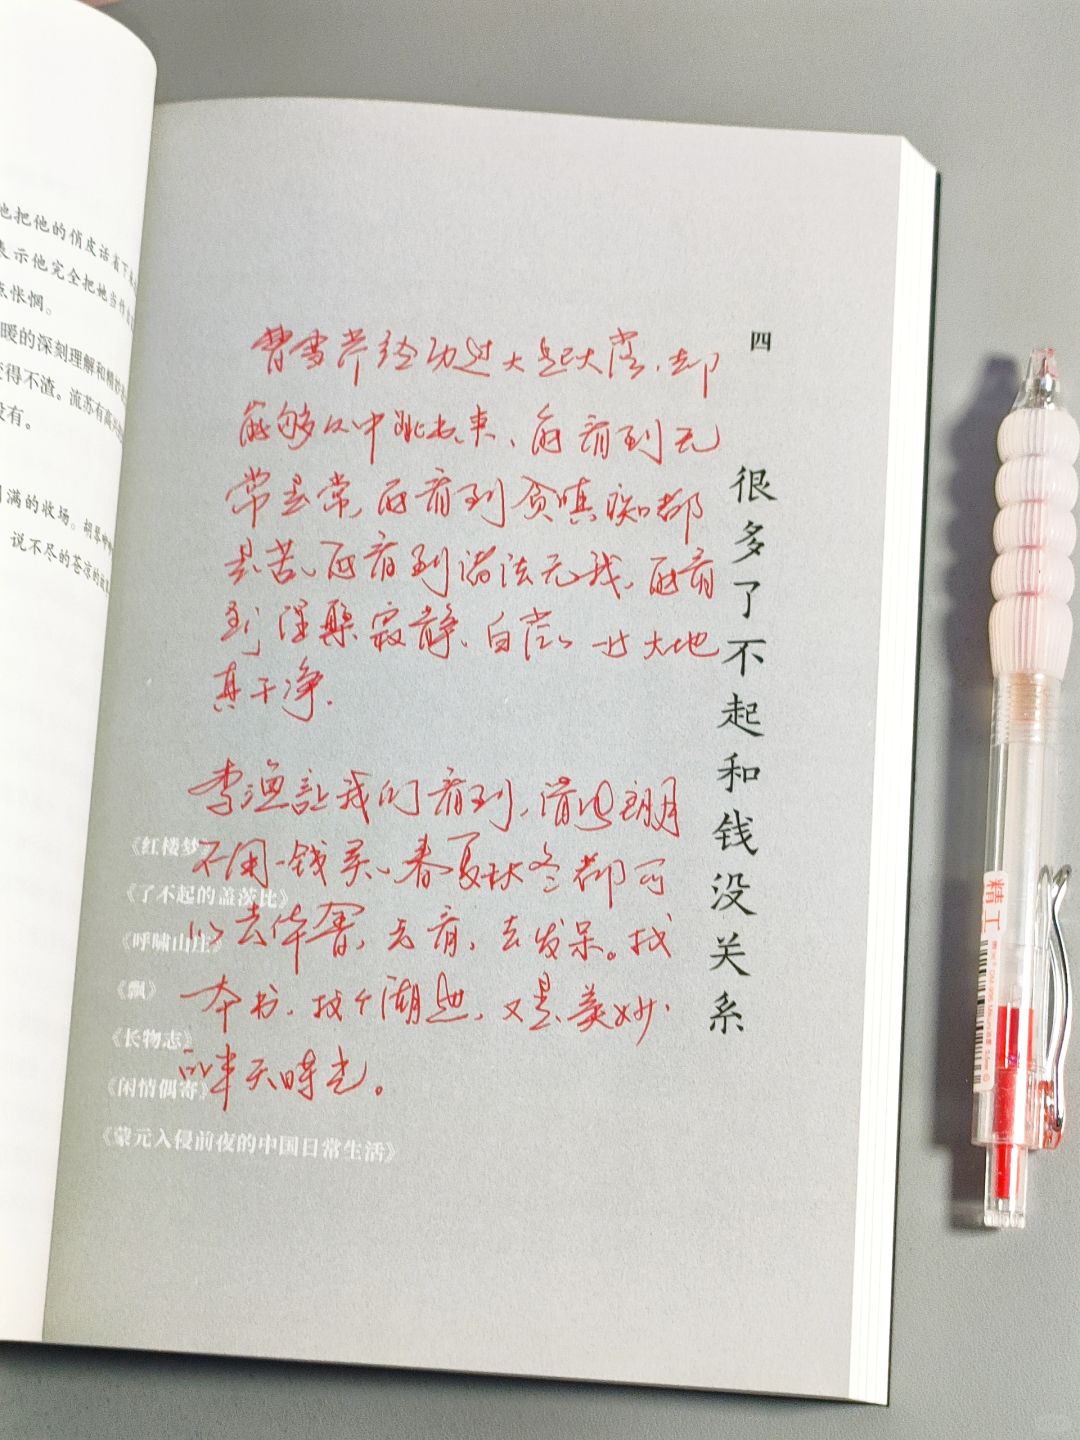 他把他的俏皮话省下来
表示他完全把她当作自家
点怅惘。
暖的深刻理解和精妙
变得不渣。流苏有高兴
没有。
圆满的收场。胡琴咿咿
说不尽的苍凉的故事
四
很多了不起和钱没关系
曹雪芹经历过大起大落,却
能够从中跳出来、能看到无
常是常,能看到贪嗔痴都
是苦、能看到诸法无我,能看
到涅槃寂静、白茫茫一片大地
真干净.
李渔让我们看到,清风明月
不用一钱买、春夏秋冬都可
以去体会,去看,去发呆。找
一本书,找个湖边,又是美妙
的半天时光。
《红楼梦》
《了不起的盖茨比》
《呼啸山庄》
《飘》
《长物志》
《闲情偶寄》
《蒙元入侵前夜的中国日常生活》
精工